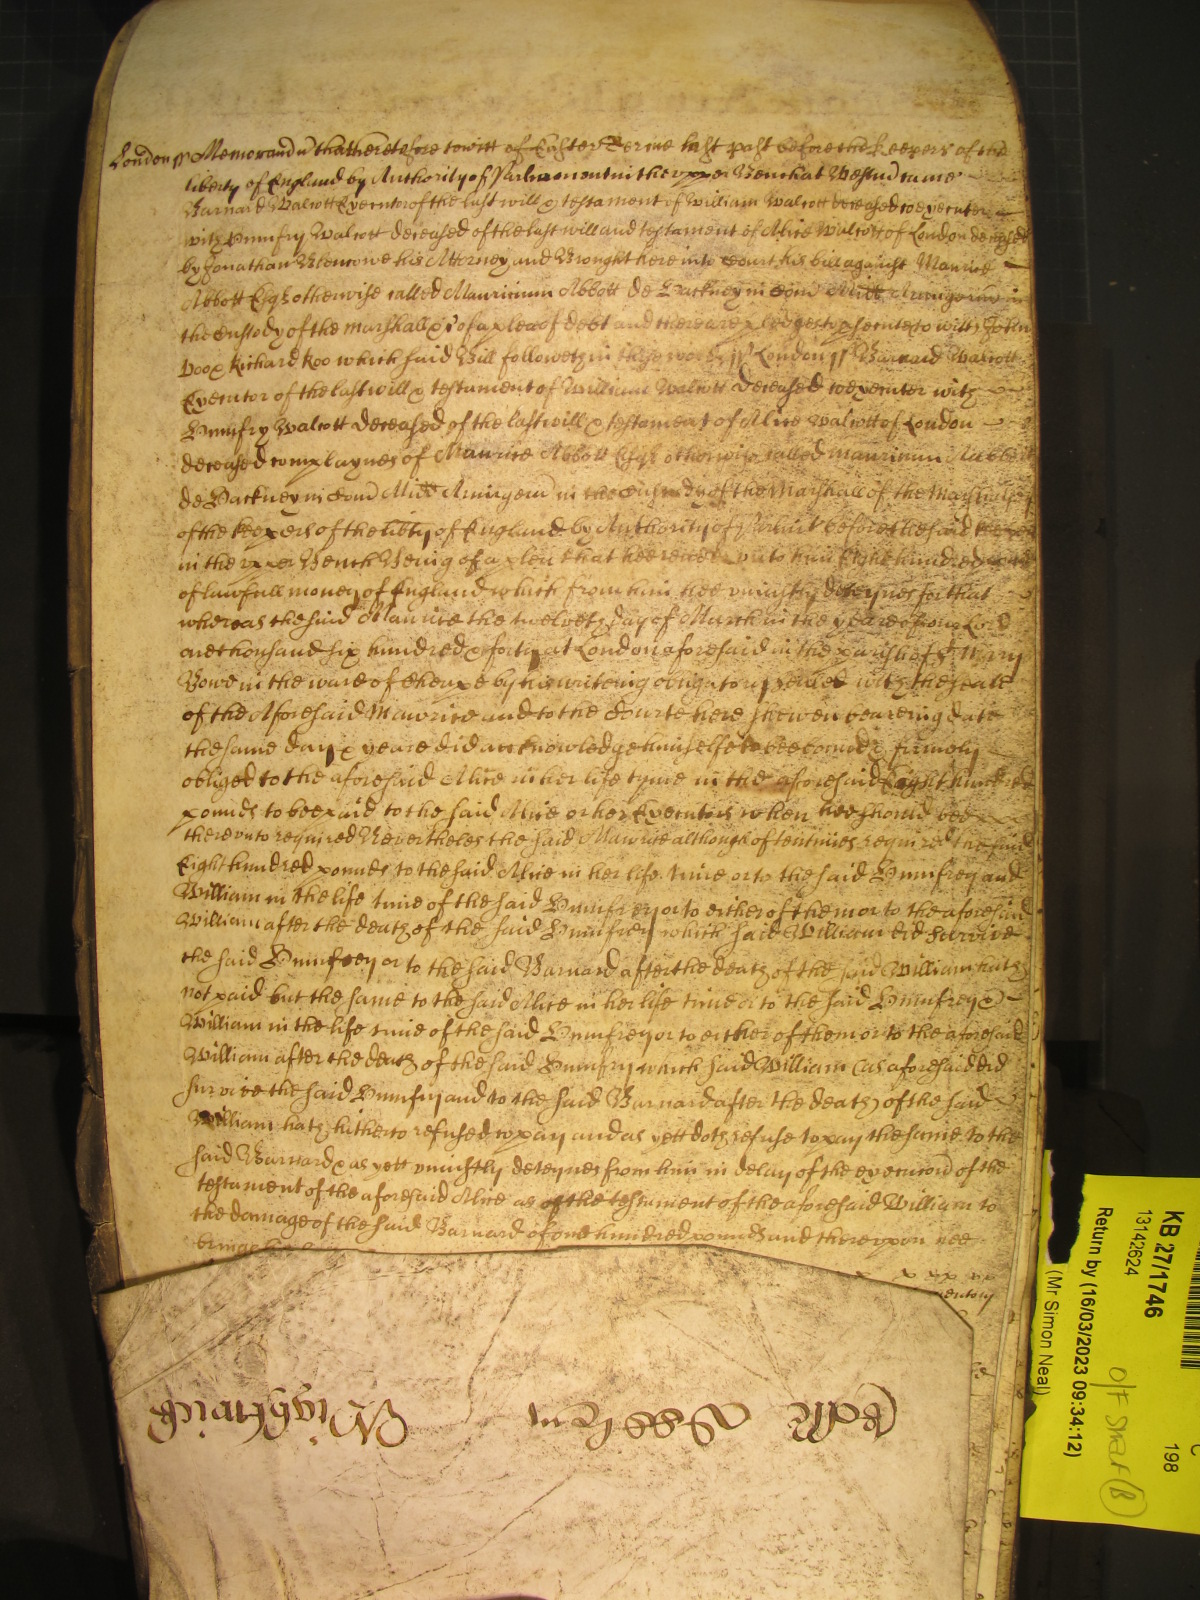 London ss Memorandu that heretofore to witt of Easter Terme last past before the Keepers of the
liberty of England by Authority of Parliament in the upper Bench at Westm came
Barnard Walcott Executor of the last will & testament of William Walcott deceased coexecutor
with Humfry Walcott deceased of the last will and testament of Alice Walcott of London deceased
by Jonathan his Attorney and Brought here into Court his bill against Maurice
Abbott Esqr otherwise called Mauricium Abbott de Hackney in Com Midd Armigerum in
the Custody of the marshall &c of a plea of debt and there are pledges to psecute to witt John
Doo & Richard Roo which said Bill followeth in these words ss London ss Barnard Walcott
Executor of the last will & testament of William Walcott deceased coexecutor with
Humfry Walcott deceased of the last will & testament of Alice Walcott of London
deceased complaynes of Maurice Abbott Esqr otherwise called mauricium Abbott
de Hackney in Com Midd Armigerum in the Custody of the Marshall of the Marshalsey
of the Keepers of the libty of England by Authority of Parliament before the said Keepers
in the upper Bench Being of a plea that hee render unto him Eight hundred pounds
of lawfull money of England which from him hee uniustly deteynes for that
whereas the said Maurice the twelveth day of March in the yeare of our Lord
one thousand six hundred & forty at London aforesaid in the parish of St Mary
Bowe in the ward of Cheape by his writeing obligatory sealed with the seale
of the Aforesaid Maurice and to the Courte here shewen beareing date
the same day & yeare did acknowledge himselfe to bee bound & firmely
obliged to the aforesaid Alice in her life tyme in the aforesaid Eight hundred
pounds to bee paid to the said Alice or her Executors when hee should bee
thereunto required Neverthelesse the said Maurice although oftentimes required the said
Eight hundred pounds to the said Alice in her life time or to the said Humfrey and
William in the life time of the said Humfrey or to either of them or to the aforesaid
William after the death of the said Humfrey which said William did survive
the said Humfrey or to the said Barnard after the death of the said William hath
not paid but the same to the said Alice in her life time or to the said Humfrey &
William in the life time of the said Humfrey or to either of them or to the aforesaid
William after the death of the said Humfry which said William (as aforesaid did
survive the said Humfry and to the said Barnard after the death of the said
William hath hitherto refused to pay and as yett doth refuse to pay the same to the
said Barnard & as yett uniustly deteynes from him in delay of the execucon of the
testament of the aforesaid Alice as of the testament of the aforesaid William to
the damage of the said Barnard of one hundred pounds and thereupon hee
KB 27/1746
13142624
Return by (16/03/2023 09:34:12)
(Mr Simon Neal)
198
O/F SMALL (B)